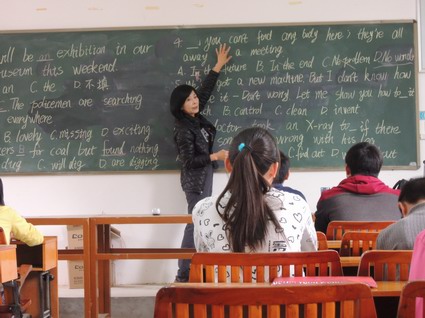 ill be an exhibition in our
useum this weekend.
an C the D 不填
The policemen are searching
everywhere
B. lovely C. missing D. exciting
for coal but found nothing
ders
C. will dig D. are digging
4. you can't find any body here; they're all
away a meeting.
future B. In the end C. No problem D. No wonder
got a new machine. But I don't know how
it - Don't worry! Let me show you to it
B. control C. clean D. invent
an X-ray to if there
wrong with his
find out D.